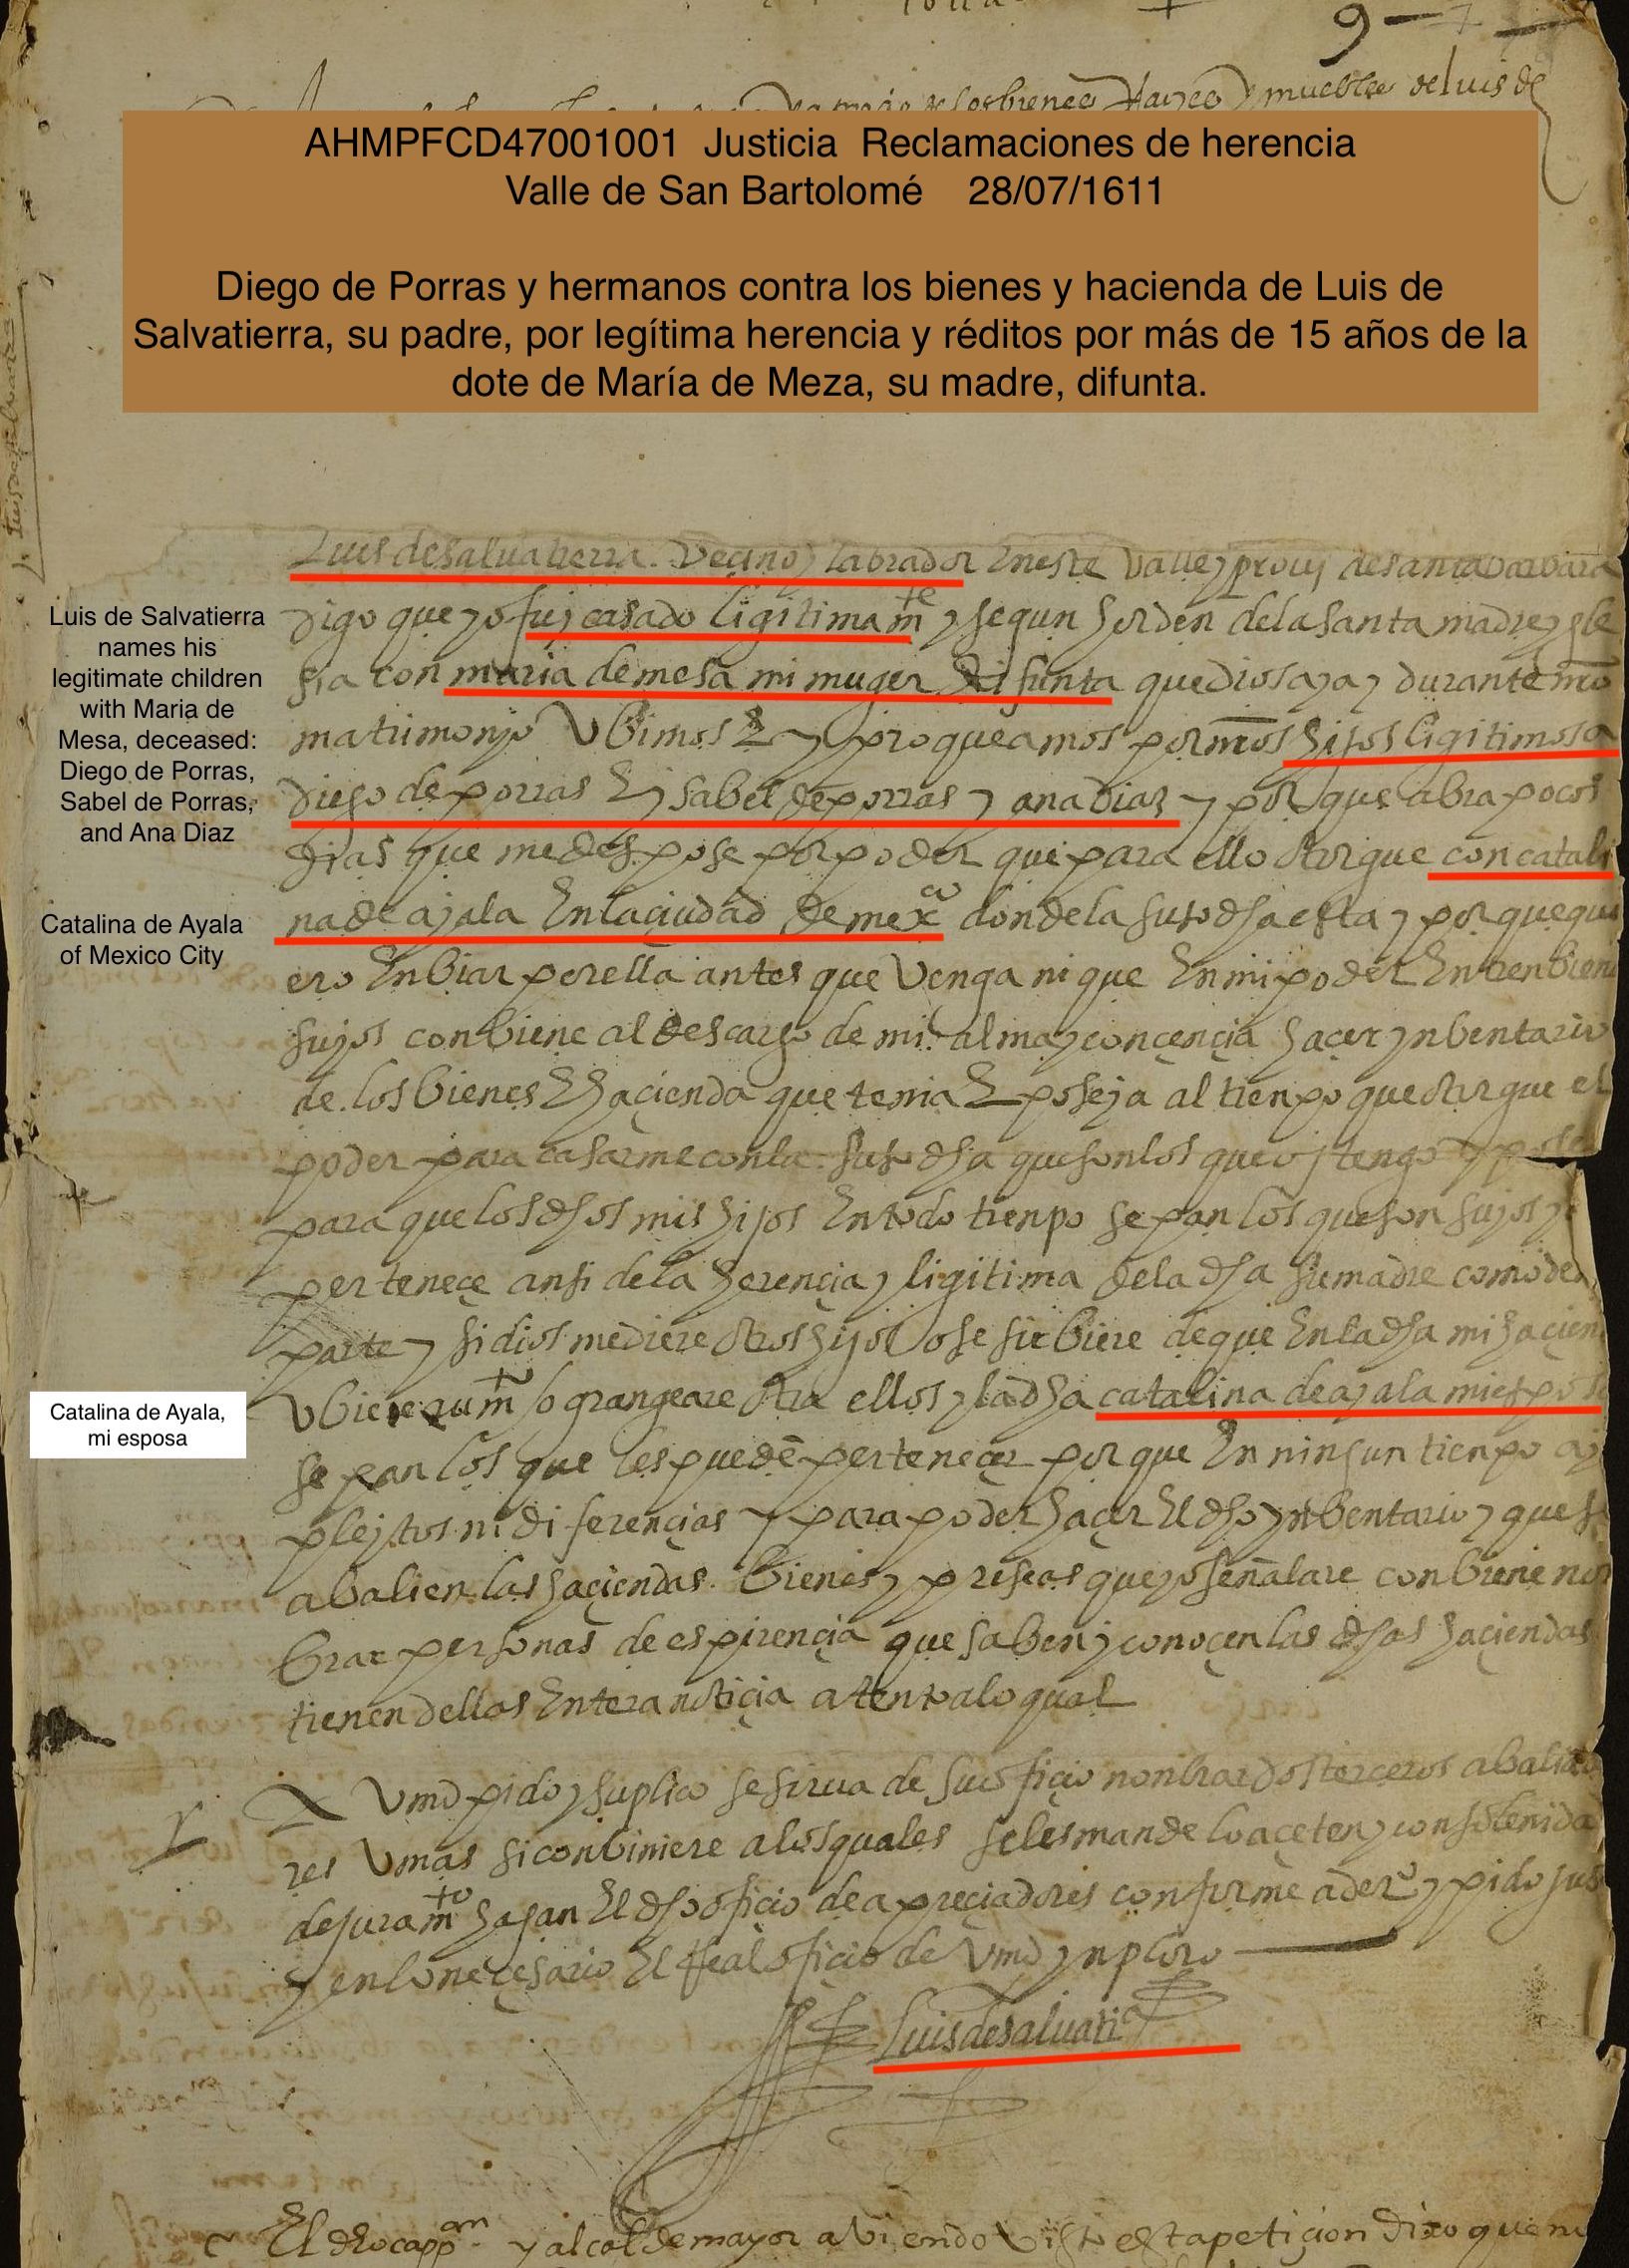 9
de los bienes Rayces y muebles de luis de
AHMPFCD47001001 Justicia Reclamaciones de herencia
Valle de San Bartolomé 28/07/1611
Diego de Porras y hermanos contra los bienes y hacienda de Luis de
Salvatierra, su padre, por legítima herencia y réditos por más de 15 años de la
dote de María de Meza, su madre, difunta.
Luis de Salvatierra
names his
legitimate children
with Maria de
Mesa, deceased:
Diego de Porras,
Sabel de Porras,
and Ana Diaz
Catalina de Ayala
of Mexico City
Catalina de Ayala,
mi esposa
Luis de salvatierra. Vecino y labrador En este Valle y provᵃ de santa barbara
digo que yo fuj casado ligitimamte y segun horden de la santa madre ygle
sia con maria de mesa mi muger difunta que dios aya y durante nrō
matrimonjo Vbimos E procreamos por nrōs hijos ligitimos a
diego de porras E ysabel de porras y ana diaz y por que abra pocos
dias que me despose por poder que para ello otorgue con catali
na de ajala En la çiudad de mexco donde la susodha esta y por que qui
ero Enbiar por ella antes que Venga ni que En mi poder Entren bienes
sujos conbiene al descargo de mi alma y conçençia haçer ynbentario
de los bienes E haçienda que tenia E poseja al tienpo que otorgue el
poder para casarme con la susodha que son los que oj tengo y pose
para que los dhos mis hijos En todo tienpo sepan los que son sujos y
perteneçe ansi de la herençia y ligitima de la dha su madre como de
parte y si dios me diere otros hijos o se sirbiere de que En la dha mi haçien
Vbiere aumto o grangeare otra ellos y la dha catalina de ajala mi espos
sepan los que les puedē perteneçer por que En ningun tienpo aj
plejtos ni diferençias y para poder haçer El dho ynbentario y que se
abalien las haçiendas. bienes y preseas que yo señalare conbiene non
brar personas de espirençia que saben y conoçen las dhas haçiendas
tienen dellas Entera notiçia atento a lo qual
A Vmd pido y suplico se sirua de su ofiçio nonbrar dos terceros abaliado
res V mas si conbiniere a los quales se les mande lo açeten y con solenida
de juramto hagan El dho ofiçio de apreçiadores conforme a dero y pido jus
y en lo neçesario El Real ofiçio de Vmd ynploro
Luis de saluatiª
El dho cappan y alcalde mayor abiendo Visto esta petiçion dixo que